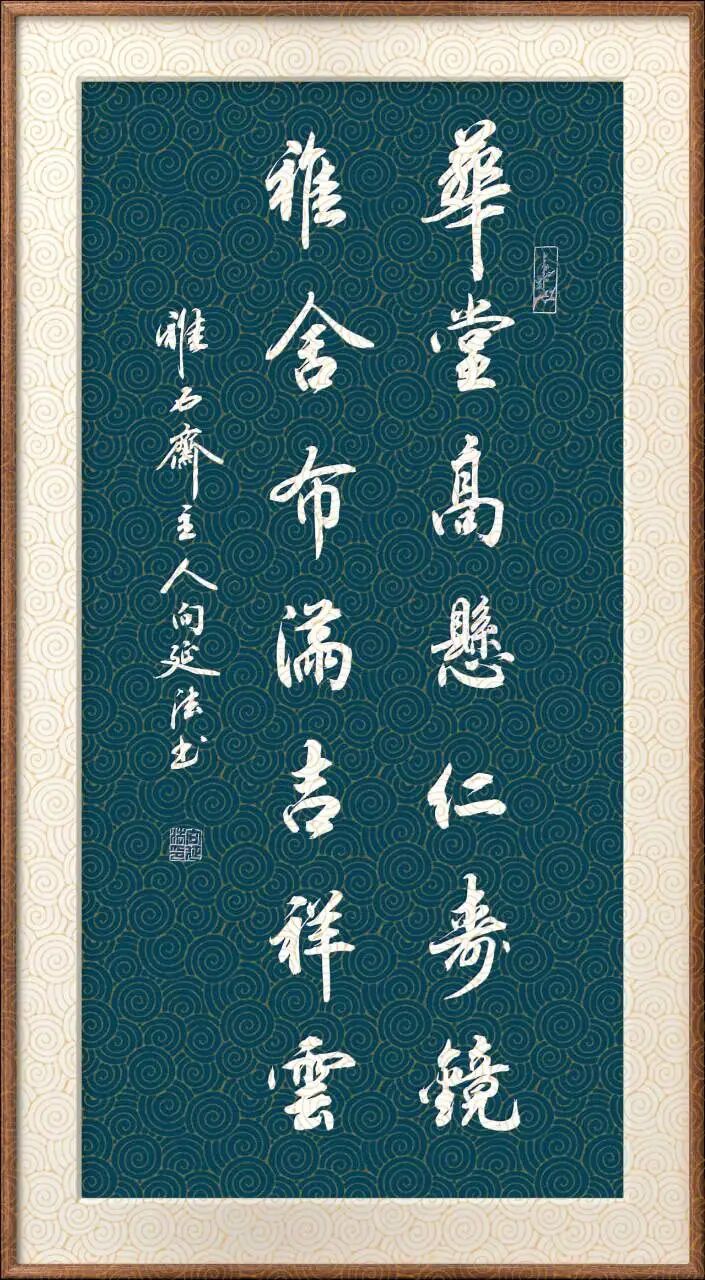 華堂高懸仁寿鏡
雅舍布滿吉祥雲
雅石齋主人向延法书